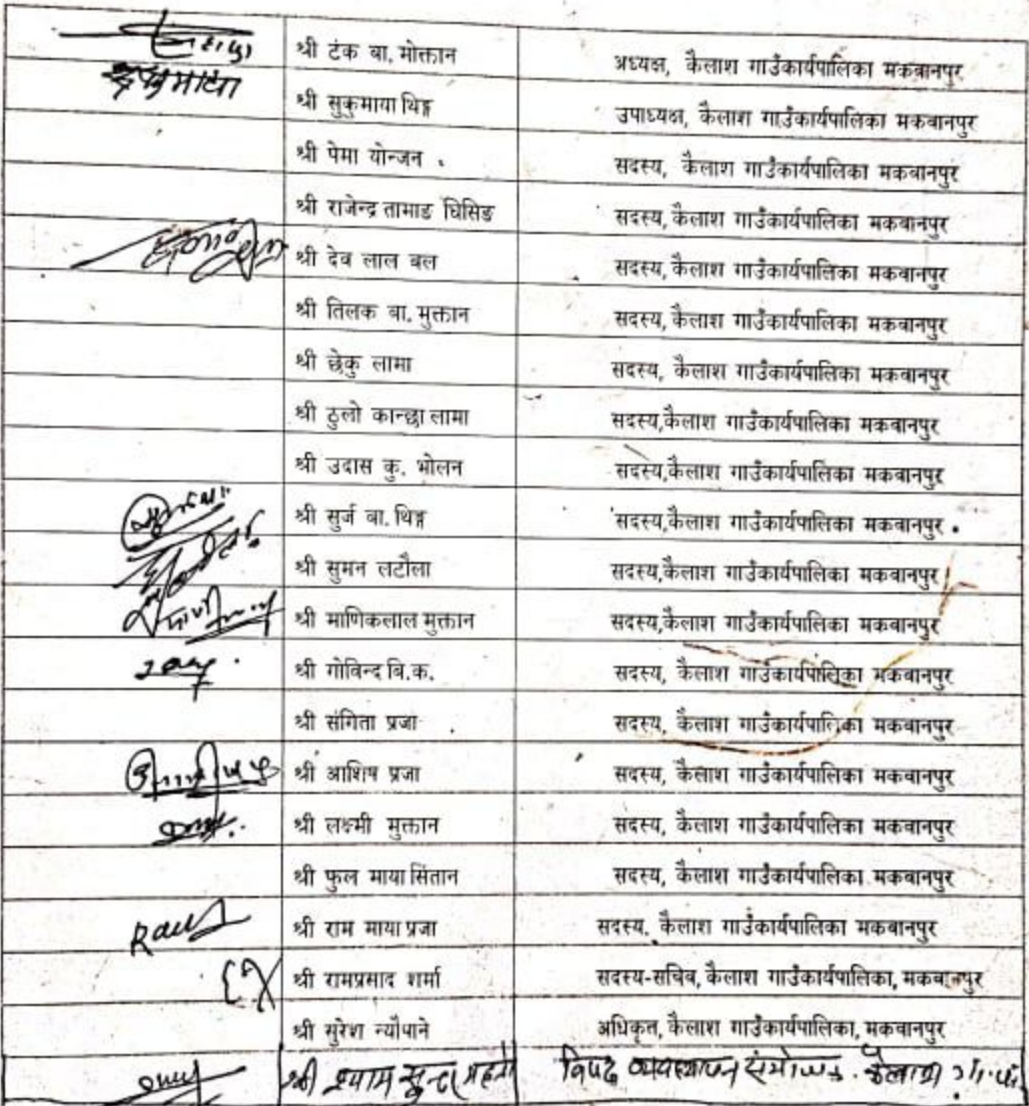 श्री टंक बा. मोक्तान अध्यक्ष, कैलाश गाउँकार्यपालिका मकवानपुर
सुकुमाया श्री सुकुमाया थिङ्ग उपाध्यक्ष, कैलाश गाउँकार्यपालिका मकवानपुर
श्री पेमा योन्जन सदस्य, कैलाश गाउँकार्यपालिका मकवानपुर
श्री राजेन्द्र तामाङ घिसिङ सदस्य, कैलाश गाउँकार्यपालिका मकवानपुर
श्री देव लाल बल सदस्य, कैलाश गाउँकार्यपालिका मकवानपुर
श्री तिलक बा. मुक्तान सदस्य, कैलाश गाउँकार्यपालिका मकवानपुर
श्री छेकु लामा सदस्य, कैलाश गाउँकार्यपालिका मकवानपुर
श्री ठुलो कान्छा लामा सदस्य,कैलाश गाउँकार्यपालिका मकवानपुर
श्री उदास कु. भोलन सदस्य,कैलाश गाउँकार्यपालिका मकवानपुर
श्री सुर्ज बा. थिङ्ग सदस्य,कैलाश गाउँकार्यपालिका मकवानपुर
श्री सुमन लटौला सदस्य,कैलाश गाउँकार्यपालिका मकवानपुर
श्री माणिकलाल मुक्तान सदस्य,कैलाश गाउँकार्यपालिका मकवानपुर
श्री गोविन्द बि.क. सदस्य, कैलाश गाउँकार्यपालिका मकवानपुर
श्री संगिता प्रजा सदस्य, कैलाश गाउँकार्यपालिका मकवानपुर
श्री आशिष प्रजा सदस्य, कैलाश गाउँकार्यपालिका मकवानपुर
श्री लक्ष्मी मुक्तान सदस्य, कैलाश गाउँकार्यपालिका मकवानपुर
श्री फुल माया सिंतान सदस्य, कैलाश गाउँकार्यपालिका मकवानपुर
श्री राम माया प्रजा सदस्य, कैलाश गाउँकार्यपालिका मकवानपुर
श्री रामप्रसाद शर्मा सदस्य-सचिव, कैलाश गाउँकार्यपालिका, मकवानपुर
श्री सुरेश न्यौपाने अधिकृत, कैलाश गाउँकार्यपालिका, मकवानपुर
श्री श्याम सुन्दर विपद व्यवस्थापन संयोजक. कैलाश गा.पा.